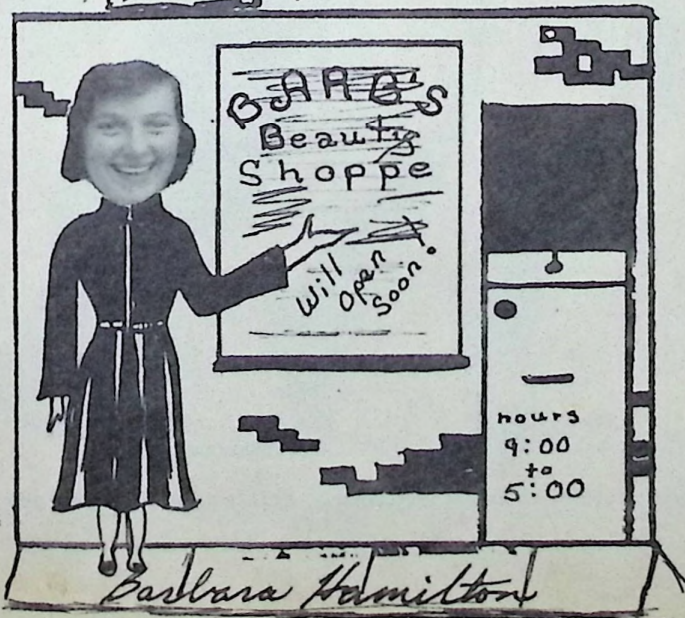 BARB'S
Beauty
Shoppe
Will
Open
Soon!
hours
9:00
to
5:00
Barbara Hamilton